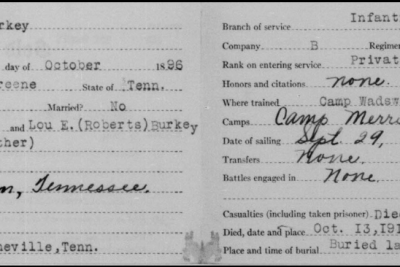 rkey
day of October 1896
reene State of Tenn.
Married? No
and Lou E.(Roberts)Burkey
ther)
n, Tennessee.
neville,Tenn.
Infant
Branch of service
Company B Regimen
Rank on entering service Privat
Honors and citations none.
Where trained Camp Wadsw
Camps Camp Merr
Date of sailing Sept. 29,
Transfers None.
Battles engaged in None
Casualties (including taken prisoner) Die
Died, date and place Oct. 13,191
Place and time of burial Buried la